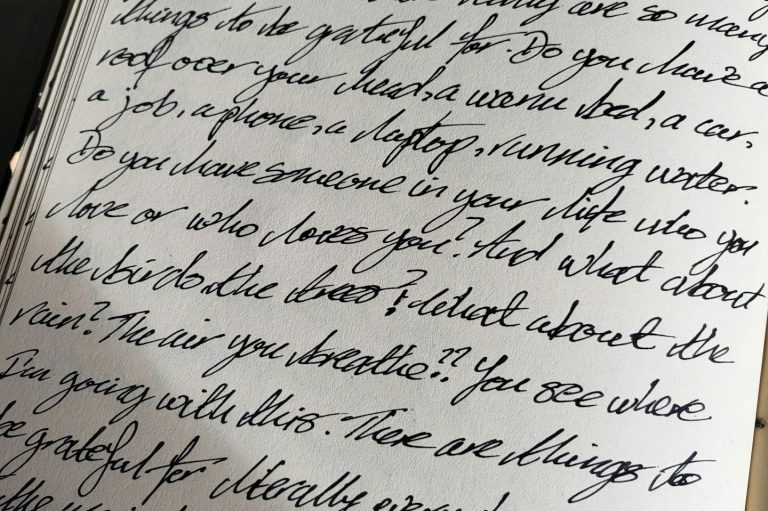 are so many
things to be grateful for. Do you have a
roof over your head, a warm bed, a car,
a job, a phone, a laptop, running water.
Do you have someone in your life who you
love or who loves you? And what about
the birds, the trees? What about the
rain? The air you breathe?? You see where
I'm going with this. There are things to
be grateful for literally
the